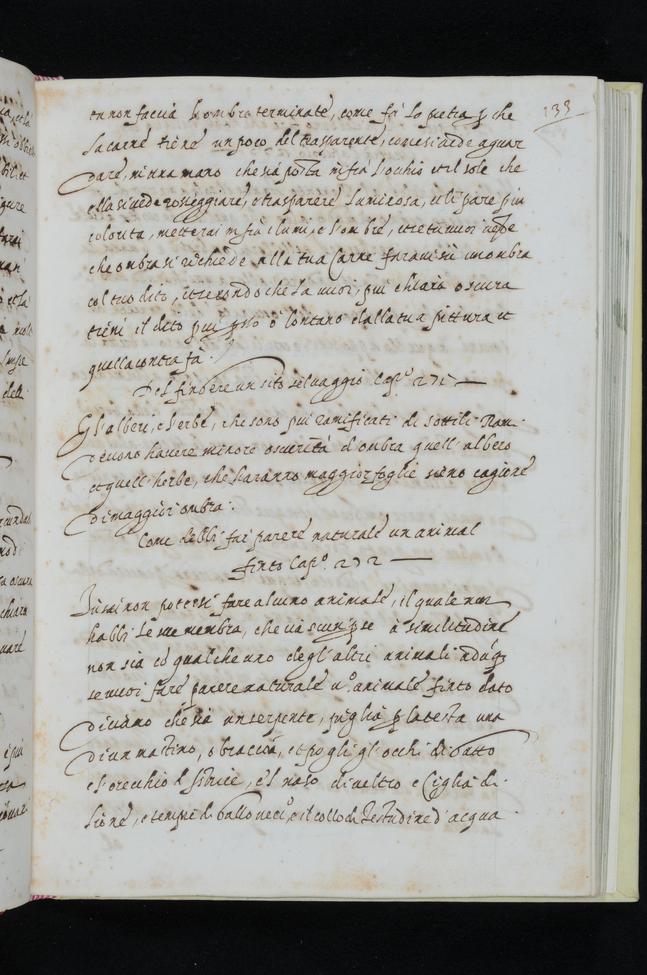 133
e non faccia l'ombre terminate, come fà la pietra ꝑ che
la carne tiene un poco del trasparente, come si vede a guar
dare, in una mano che sia posta in fra l'ochio et il sole che
ella si vede rosseggiare, e trasparere luminosa, et li pare piu
colorita, metterai in frà i lumi, e l'ombre, et se tu vuoi
che ombra si richiede alla tua carne farauisi un ombra
col tuo dito, et secondo che la vuoi, piu chiara o scura
tieni il dito piu ꝑsso o lontano dalla tua pittura et
quella contra fa.
Del fingere un sito selvaggio Cap.º 271
Gl'alberi, e l'erbe, che sono piu ramificati di sottili Ram
devono havere minore oscurità d'ombra quell'albero
et quell'herbe, che haranno maggior foglie sieno cagione
di maggiori ombra.
Come debbi far parere naturale un animal
finto Cap.º 272
Tu sai non potersi fare alcuno animale, il quale non
habbi le sue membra, che à similitudine
non sia cō qualche uno degl'altri animali adūq
se vuoi fare parere naturale uº. animale finto dato
diciamo che sia un serpente, piglia ꝑ la testa una
di un mastino, o bracca, et pogli gl'occhi di Gatto
e l'orecchio d Istrice, e'l naso di veltro e Ciglia di
lione, e tempie di Gallo vecº, e il collo di Testudine d'acqua